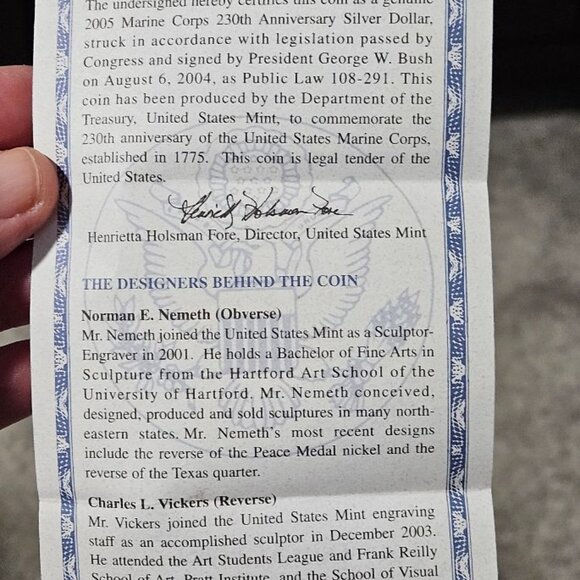 The undersigned hereby certifies this coin as a genuine
2005 Marine Corps 230th Anniversary Silver Dollar,
struck in accordance with legislation passed by
Congress and signed by President George W. Bush
on August 6, 2004, as Public Law 108-291. This
coin has been produced by the Department of the
Treasury, United States Mint, to commemorate the
230th anniversary of the United States Marine Corps,
established in 1775. This coin is legal tender of the
United States.
Henrietta Holsman Fore
Henrietta Holsman Fore, Director, United States Mint
THE DESIGNERS BEHIND THE COIN
Norman E. Nemeth (Obverse)
Mr. Nemeth joined the United States Mint as a Sculptor-
Engraver in 2001. He holds a Bachelor of Fine Arts in
Sculpture from the Hartford Art School of the
University of Hartford. Mr. Nemeth conceived,
designed, produced and sold sculptures in many north-
eastern states. Mr. Nemeth's most recent designs
include the reverse of the Peace Medal nickel and the
reverse of the Texas quarter.
Charles L. Vickers (Reverse)
Mr. Vickers joined the United States Mint engraving
staff as an accomplished sculptor in December 2003.
He attended the Art Students League and Frank Reilly
School of Art, Pratt Institute, and the School of Visual